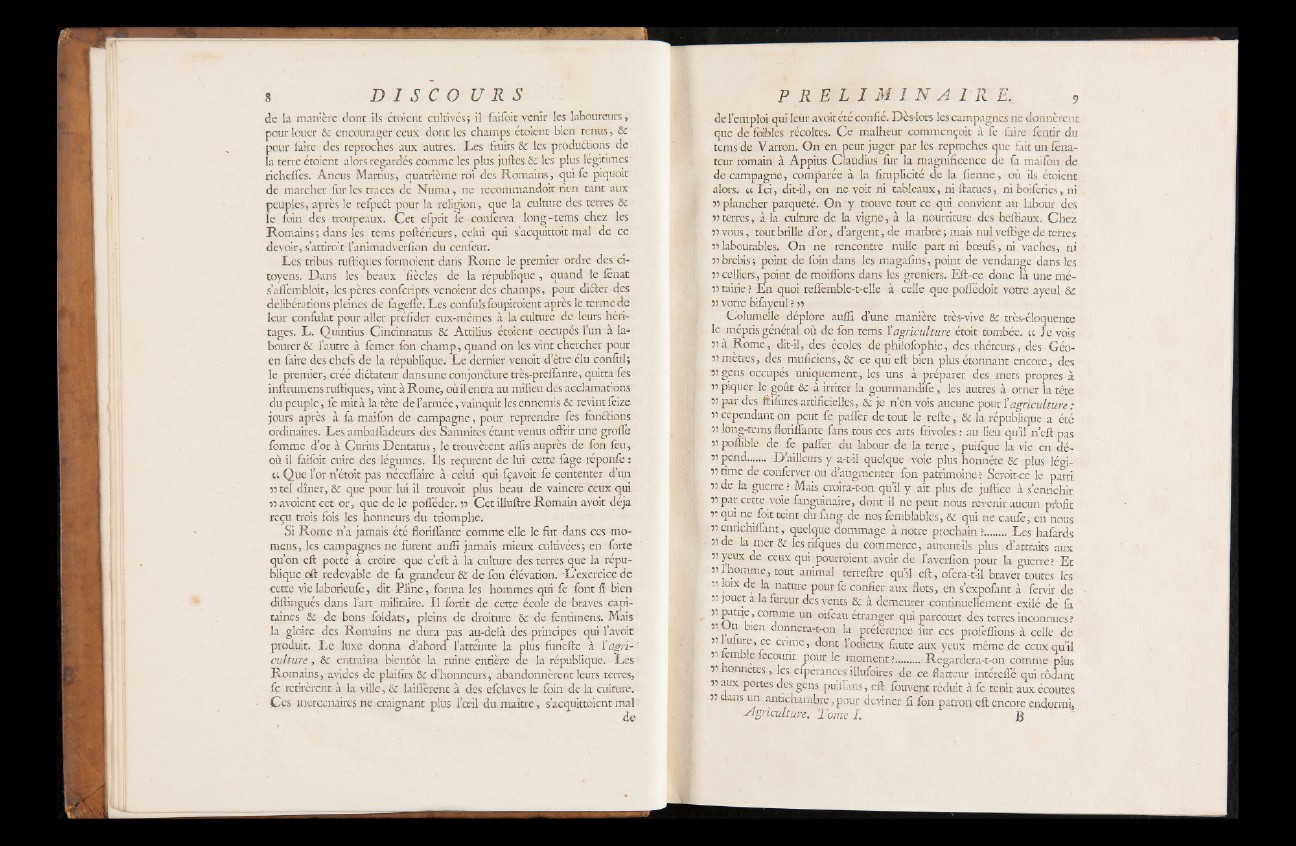 8 DISCOURS
de la manière dont ils étoient cultivés; il faiſoit venir les laboureurs,
pour louer & encourager ceux dont les champs étoient bien tenus, &
pour faire des reproches aux autres. Les fruits & les productions de
la terre étoient alors regardés comme les plus juſtes & les plus légitimes
richeſſes. Ancus Martius, quatrième roi des Romains, qui ſe piquoit
de marcher ſur les traces de Numa, ne recommandoit rien tant aux
peuples, après le reſpect pour la religion, que la culture des terres &
le ſoin des troupeaux. Cet eſprit ſe conſerva long-tems chez les
Romains; dans les tems poſtérieurs, celui qui s'acquittoit mal de ce
devoir, s'attiroit l'animadverſion du cenſeur.
Les tribus ruſtiques formoient dans Rome le premier ordre des ci-
toyens. Dans les beaux ſiècles de la république, quand le ſénat
s'aſſembloit, les pères conſcripts venoient des champs, pour dicter des
délibérations pleines de ſageſſe. Les conſuls ſoupiroient après le terme de
leur conſulat pour aller préſider eux-mêmes à la culture de leurs héri-
tages. L. Quintius Cincinnatus & Attilius étoient occupés l'un à la-
bourer & l'autre à ſemer ſon champ, quand on les vint chercher pour
en faire des chefs de la république. Le dernier venoit d'être élu conſul;
le premier, créé dictateur dans une conjoncture très-preſſante, quitta ſes
inſtrumens ruſtiques, vint à Rome, où il entra au milieu des acclamations
du peuple, ſe mit à la tête de l'armée, vainquit les ennemis & revint ſeize
jours après à ſa maiſon de campagne, pour reprendre ſes fonctions
ordinaires. Les ambaſſadeurs des Samnites étant venus offrir une groſſe
ſomme d'or à Curius Dentatus, le trouvèrent aſſis auprès de ſon feu,
où il faiſoit cuire des légumes. Ils reçurent de lui cette ſage réponſe :
« Que l'or n'étoit pas néceſſaire à celui qui ſçavoit ſe contenter d'un
» tel dîner, & que pour lui il trouvoit plus beau de vaincre ceux qui
» avoient cet or, que de le poſſéder. » Cet illuſtre Romain avoit déja
reçu trois fois les honneurs du triomphe.
Si Rome n'a jamais été floriſſante comme elle le fut dans ces mo-
mens, les campagnes ne furent auſſi jamais mieux cultivées; en ſorte
qu'on eſt porté à croire que c'eſt à la culture des terres que la répu-
blique eſt redevable de ſa grandeur & de ſon élévation. L'exercice de
cette vie laborieuſe, dit Pline, forma les hommes qui ſe ſont ſi bien
diſtingués dans l'art militaire. Il ſortit de cette école de braves capi-
taines & de bons ſoldats, pleins de droiture & de ſentimens. Mais
la gloire des Romains ne dura pas au-delà des principes qui l'avoit
produit. Le luxe donna d'abord l'atteinte la plus funeſte à l'agri-
culture, & entraîna bientôt la ruine entière de la république. Les
Romains, avides de plaiſirs & d'honneurs, abandonnèrent leurs terres,
ſe retirèrent à la ville, & laiſſèrent à des eſclaves le ſoin de la culture.
Ces mercenaires ne craignant plus l'œil du maître, s'acquittoient mal
de
PRELIMINAIRE. 9
de l'emploi qui leur avoit été confié. Dès-lors les campagnes ne donnèrent
que de foibles récoltes. Ce malheur commençoit à ſe faire ſentir du
tems de Varron. On en peut juger par les reproches que fait un ſéna-
teur romain à Appius Claudius ſur la magnificence de ſa maiſon de
de campagne, comparée à la ſimplicité de la ſienne, où ils étoient
alors. « Ici, dit-il, on ne voit ni tableaux, ni ſtatues, ni boiſeries, ni
» plancher parqueté. On y trouve tout ce qui convient au labour des
» terres, à la culture de la vigne, à la nourriture des beſtiaux. Chez
» vous, tout brille d'or, d'argent, de marbre; mais nul veſtige de terres
» labourables. On ne rencontre nulle part ni bœufs, ni vaches, ni
» brebis; point de foin dans les magaſins, point de vendange dans les
» celliers, point de moiſſons dans les greniers. Eſt-ce donc là une mé-
» tairie? En quoi reſſemble-t-elle à celle que poſſédoit votre ayeul &
» votre biſayeul? »
Columelle déplore auſſi d'une manière très-vive & très-éloquente
le mépris général où de ſon tems l'agriculture étoit tombée. « Je vois
» à Rome, dit-il, des écoles de philoſophie, des rhéteurs, des Géo-
» mètres, des muſiciens, & ce qui eſt bien plus étonnant encore, des
» gens occupés uniquement, les uns à préparer des mets propres à
» piquer le goût & à irriter la gourmandiſe, les autres à orner la tête
» par des friſures artificielles, & je n'en vois aucune pour l'agriculture :
» cependant on peut ſe paſſer de tout le reſte, & la république a été
» long-tems floriſſante ſans tous ces arts frivoles : au lieu qu'il n'eſt pas
» poſſible de ſe paſſer du labour de la terre, puiſque la vie en dé-
» pend....... D'ailleurs y a-t-il quelque voie plus honnête & plus légi-
» time de conſerver ou d'augmenter ſon patrimoine? Seroit-ce le parti
» de la guerre? Mais croira-t-on qu'il y ait plus de juſtice à s'enrichir
» par cette voie ſanguinaire, dont il ne peut nous revenir aucun profit
» qui ne ſoit teint du ſang de nos ſemblables, & qui ne cauſe, en nous
» enrichiſſant, quelque dommage à notre prochain?........ Les haſards
» de la mer & les riſques du commerce, auront-ils plus d'attraits aux
» yeux de ceux qui pourroient avoir de l'averſion pour la guerre? Et
» l'homme, tout animal terreſtre qu'il eſt, oſera-t-il braver toutes les
» loix de la nature pour ſe confier aux flots, en s'expoſant à ſervir de
» jouet à la fureur des vents & à demeurer continuellement exilé de ſa
» patrie, comme un oiſeau étranger qui parcourt des terres inconnues?
» Ou bien donnera-t-on la préférence ſur ces profeſſions à celle de
» l'uſure, ce crime, dont l'odieux ſaute aux yeux même de ceux qu'il
» ſemble ſecourir pour le moment?......... Regardera-t-on comme plus
» honnêtes, les eſpérances illuſoires de ce flatteur intéreſſé qui rôdant
» aux portes des gens puiſſans, eſt ſouvent réduit à ſe tenir aux écoutes
» dans un antichambre, pour deviner ſi ſon patron eſt encore endormi,
Agriculture. Tome I. B